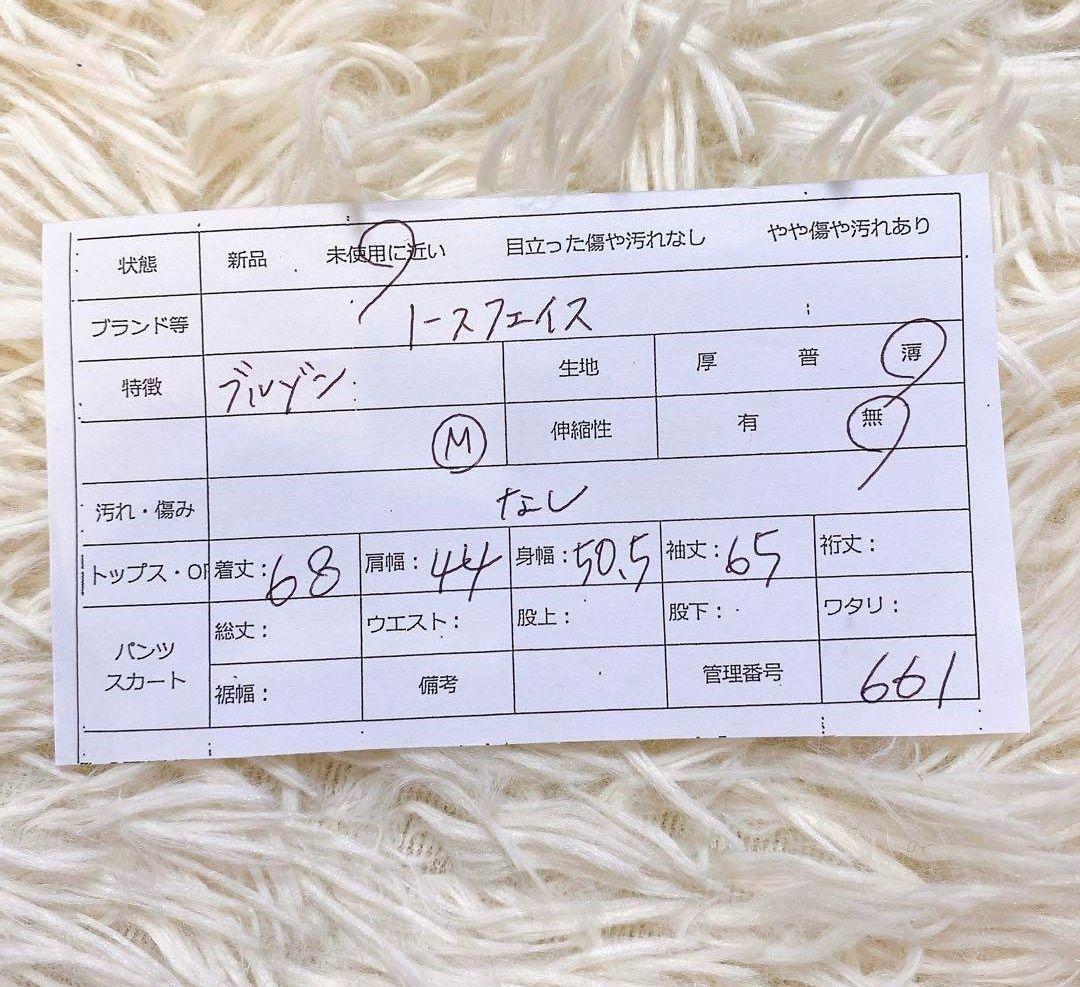 状態 新品 未使用に近い 目立った傷や汚れなし やや傷や汚れあり
ブランド等 トースフェイス
特徴 ブルゾン 生地 厚 普 薄
M 伸縮性 有 無
汚れ・傷み なし
トップス・OP 着丈:68 肩幅:44 身幅:50.5 袖丈:65 裄丈:
パンツ スカート 総丈: ウエスト: 股上: 股下: ワタリ:
裾幅: 備考 管理番号 661